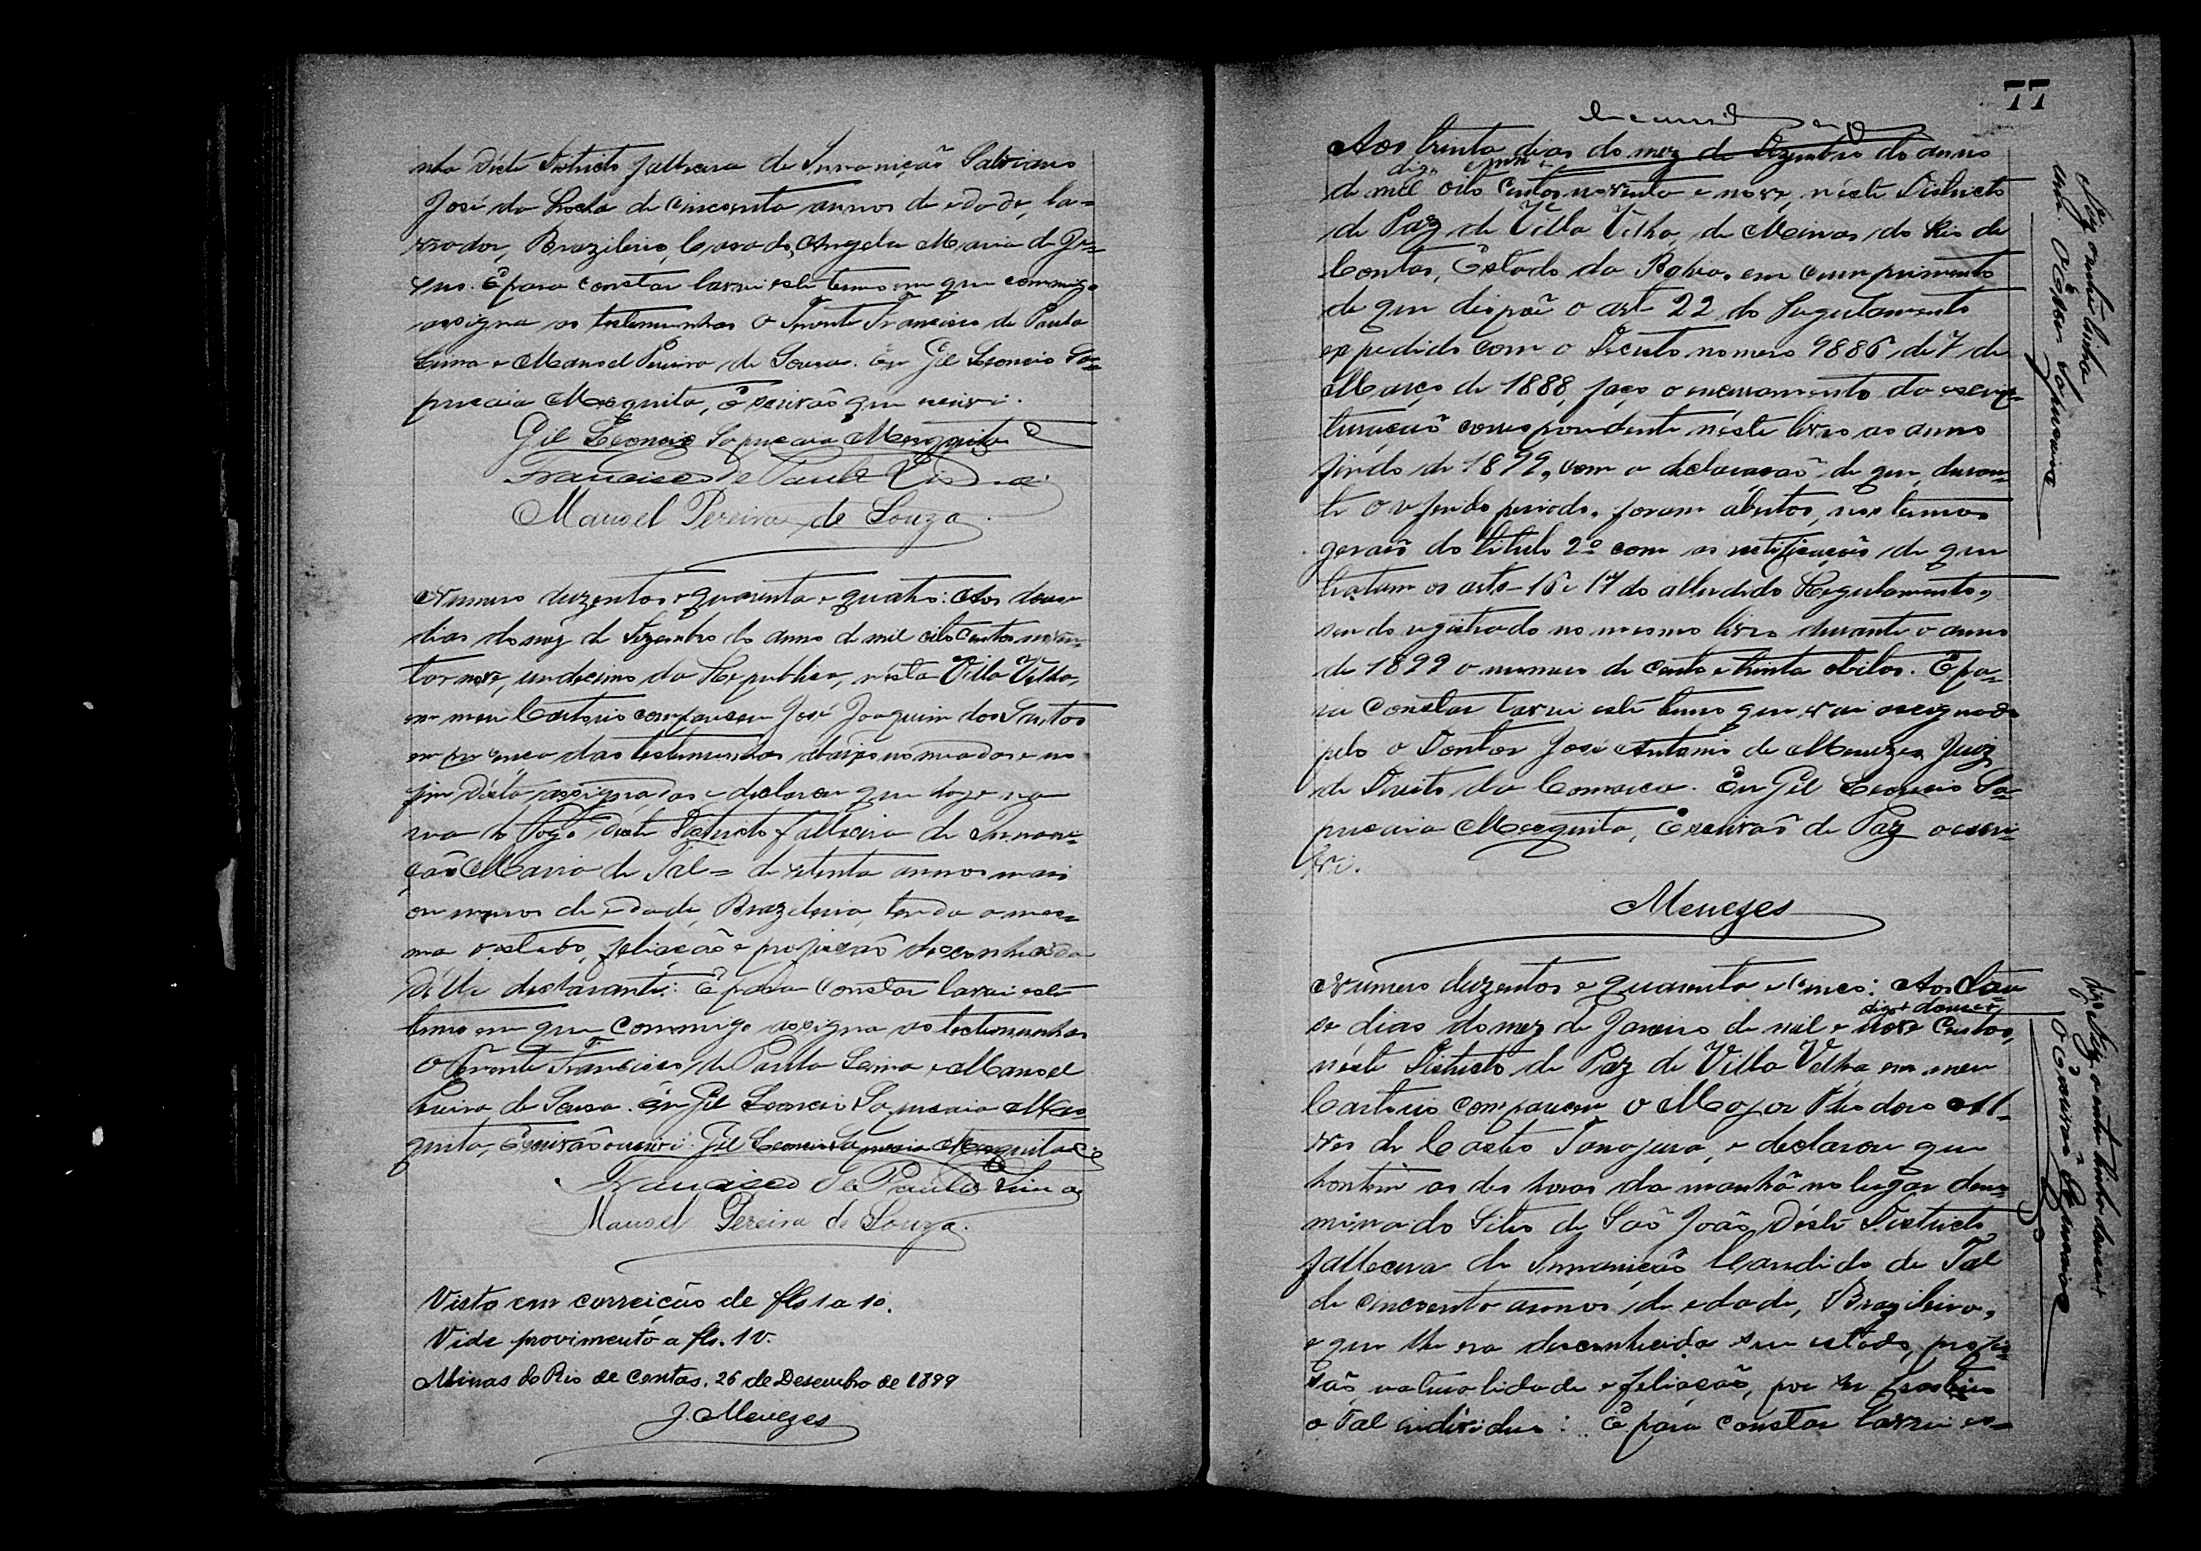 nha déste Districto fallecera de Innanição Salviano
José da Rocha de cincoenta annos de edade, la=
vrador, Brazileiro, Casado, Angela Maria de Je=
sus. E para constar lavrei este termo em que commigo
assigna as testemunhas o Tenente Francisco de Paula
Lima e Manoel Pereira de Souza. Eu Gil Leoncio Sa=
pucaia Mesquita, Escrivão que escrevi.
Gil Leoncio Sapucaia Mesquita
Francisco de Paula Lima
Manoel Pereira de Souza.
Numero duzentos e quarenta e quatro: Aos doze
dias do mez de Dezembro do anno de mil oito centos noven=
ta e nove, undecimo da Republica, nésta Villa Velha,
em meu Cartorio compareceu José Joaquim dos Santos
em prezença das testemunhas abaixo nomeadas e no
fim désta assignadas e declarou que hoje na
rua do Fogo déste Districto fallecera de Innani=
ção Maria de Tal = de setenta annos mais
ou menos de edade, Brazileira, tendo a mes=
ma o estado, filiação e profissão desconhecida
délle declarante: E para constar lavrei este
termo em que commigo assigna as testemunhas
o Tenente Francisco de Paula Lima e Manoel
Pereira de Souza. Eu Gil Leoncio Sapucaia Mes=
quita, Escrivão escrevi. Gil Leoncio Sapucaia Mesquita
Francisco de Paula Lima
Manoel Pereira de Souza.
Visto em correição de fls 1 a 10.
Vide provimento a fls. 1 v.
Minas do Rio de Contas, 26 de Desembro de 1899
J. Menezes
77
Aos trinta dias do mez de Dezembro do anno
de mil oito centos noventa e nove, néste Districto
de Paz de Villa Velha, de Minas do Rio de
Contas, Estado da Bahia, em cumprimento
de que dispõe o art 22 do Regulamento
expedido com o Decreto numero 9886 de 7 de
Março de 1888, faço o encerramento da escrip=
turação correspondente néste livro ao anno
findo de 1899, com a declaração de que, duran=
te o referido periodo, foram abertos, nos termos
geraes do titulo 2º com as rectificações de que
tratam os arts 16 e 17 do alludido Regulamento,
sendo registrado no mesmo livro durante o anno
de 1899 o numero de cento e trinta obitos. E pa=
ra constar lavrei este termo que vai assignado
pelo o Doutor José Antonio de Menezes Juiz
de Direito da Comarca. Eu Gil Leoncio Sa=
pucaia Mesquita, Escrivão de Paz o escre=
vi.
Menezes
Numero duzentos e quarenta e cinco: Aos
digo doze
se dias do mez de Janeiro de mil e nove centos,
néste Districto de Paz de Villa Velha em meu
Cartorio compareceu o Major Theodoro Al=
ves de Castro Tanajura, e declarou que
hontem as des horas da manhã no lugar deno=
minado Sitio de São João, déste Districto
fallecera de Innanição Candido de Tal
de cincoenta annos de edade, Brazileiro,
e que lhe era desconhecida seu estado, profis=
são naturalidade e filiação, por ser
o tal individuo: E para constar lavrei es=